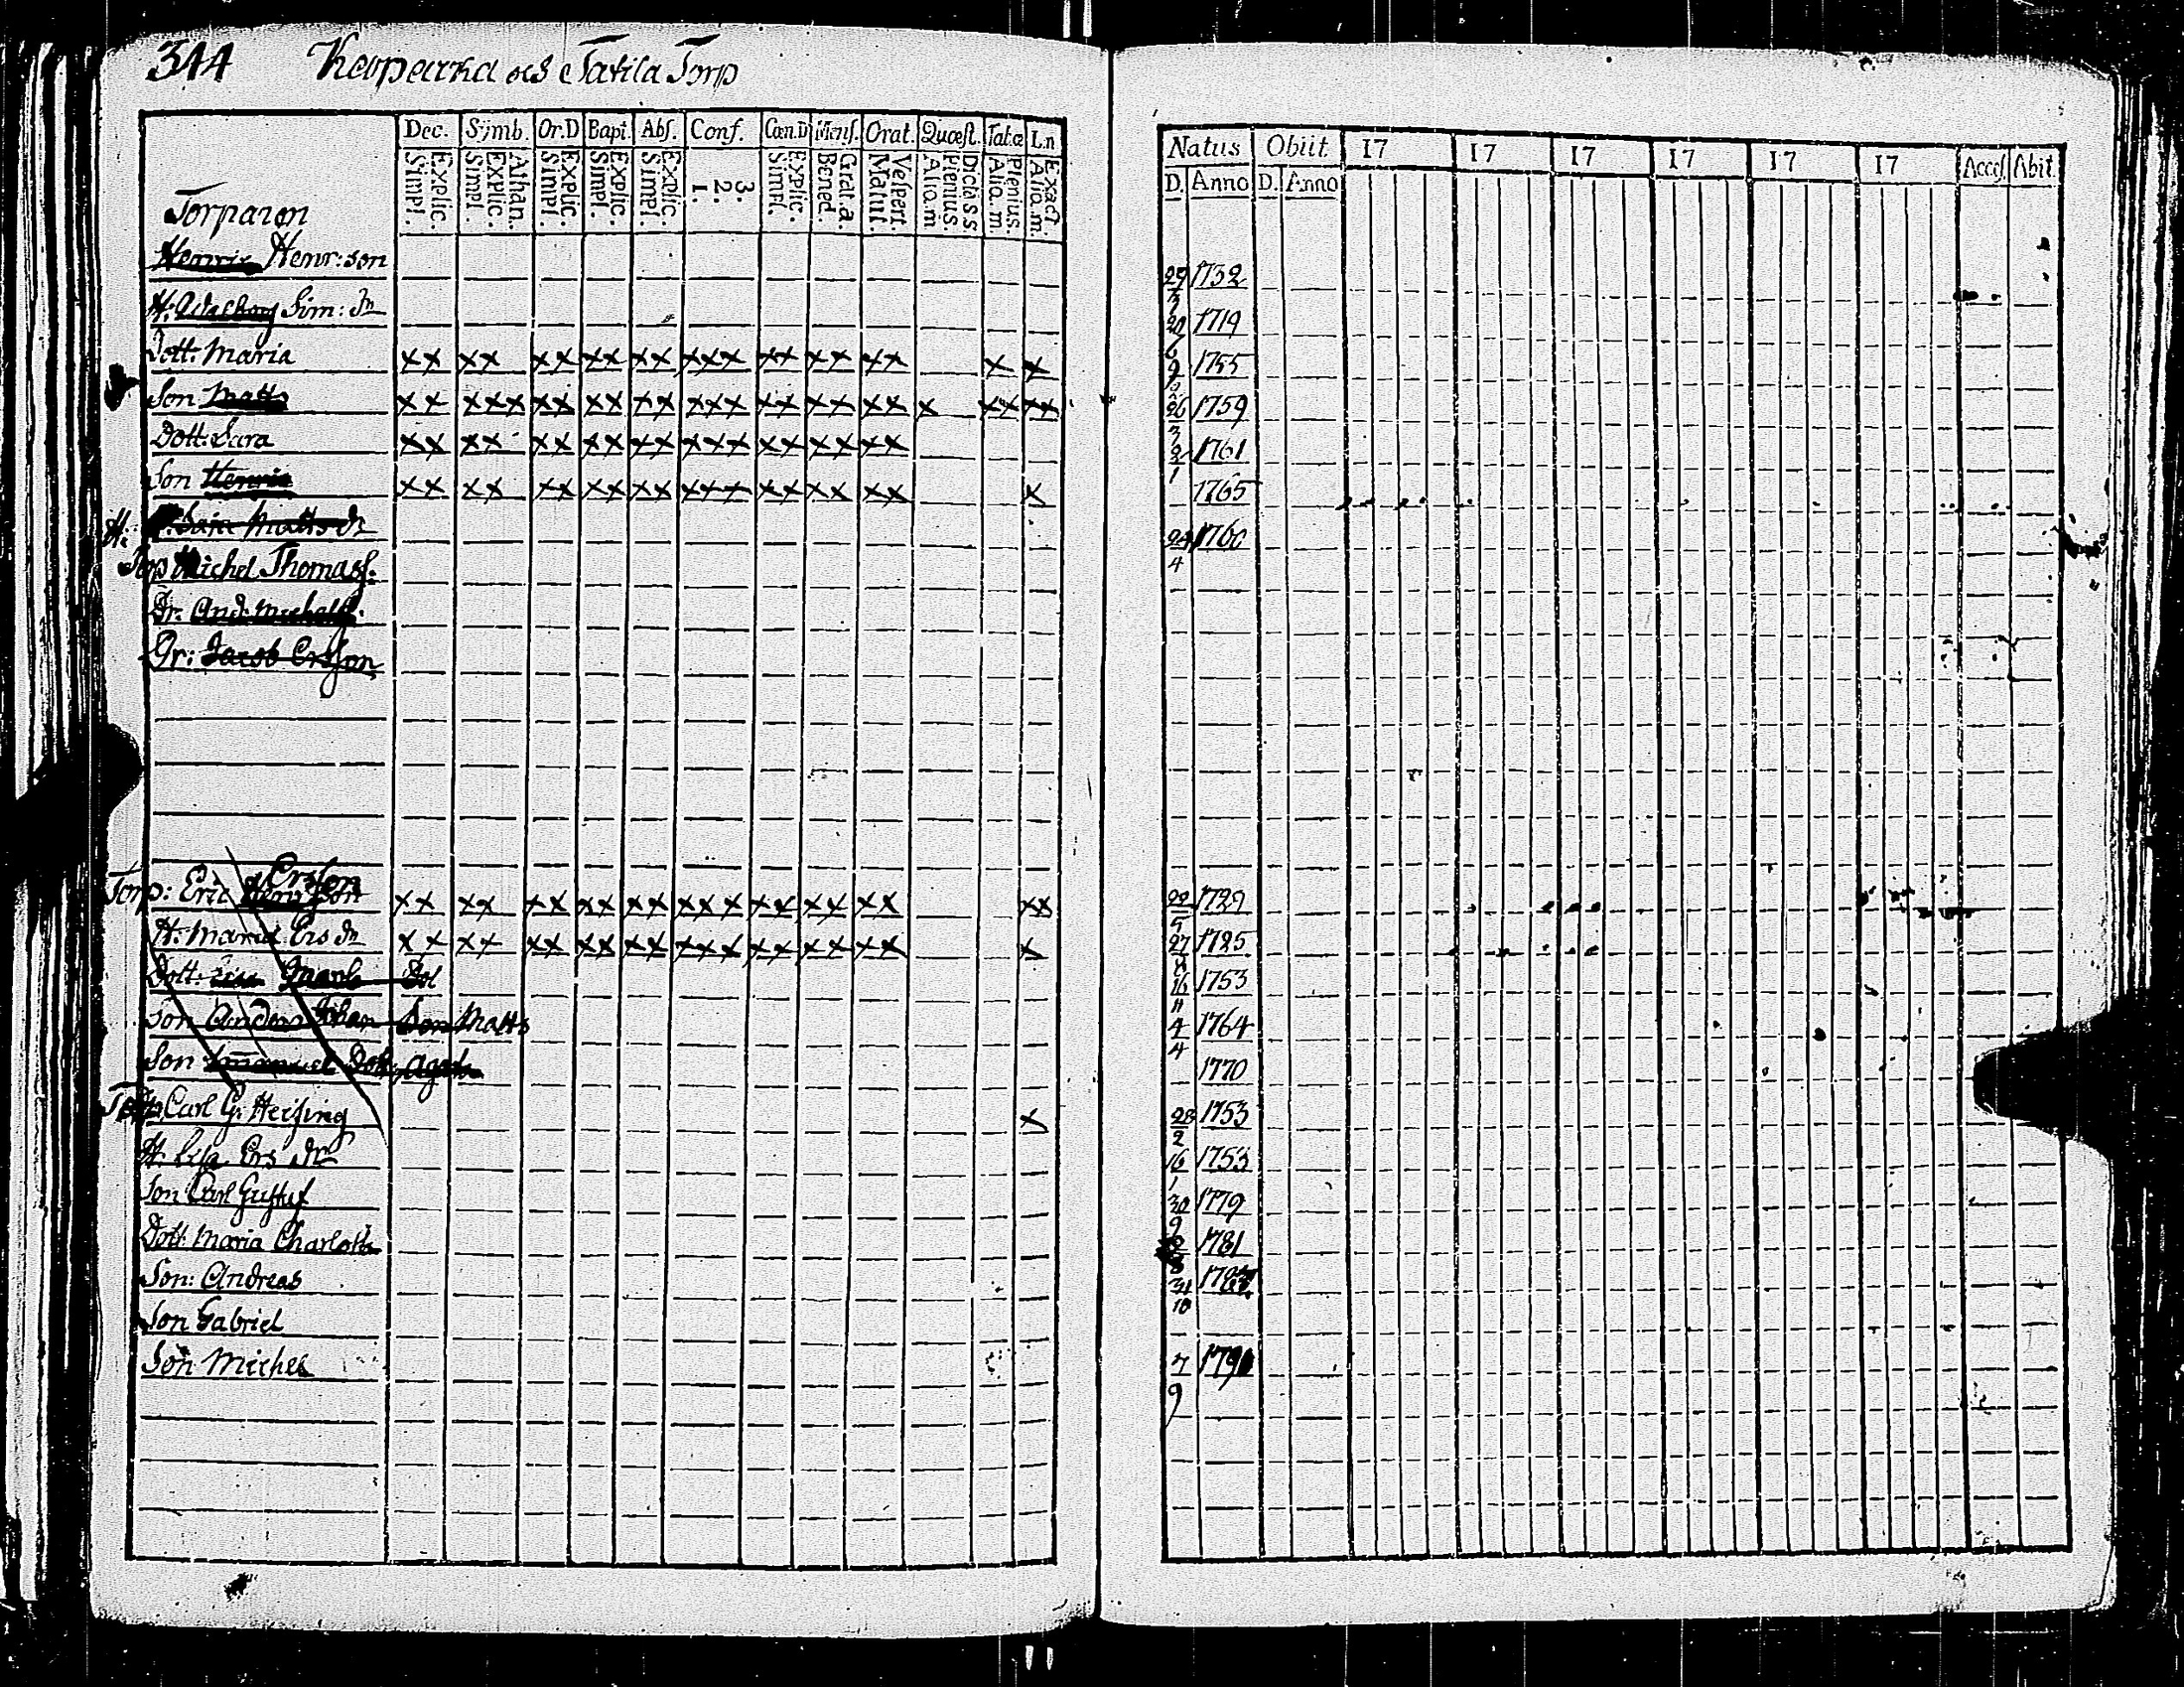 344 Keoparka och Tatila Torp
Dec. Symb. Or.D Bapt. Abs. Conf. Cœn.D Mens. Orat. Quæst. Tab.œ Ln
Explic. Simpl. Athan. Explic. Simpl. Explic. Simpl. Explic. Simpl. Explic. Simpl. 3. 2. 1. Explic. Simpl. Grat.a. Bened. Vespert. Matut. Dict.a s s Plenius. Alio.m Plenius. Alio.m Exact. Alio.m.
Natus Obiit 17 17 17 17 17 17 Acces. Abit.
D. Anno D. Anno
Torparen
Henric Henr:son 29 1732
H: Walborg Sim: dr 1719
Dott: Maria xx xx xx xx xx xxx xx xx xx x x 9 1755
Son Matts xx xxx xx xx xx xxx xx xx xx x xx xx 26 1759
Dott: Sara xx xx xx xx xx xxx xx xx xx 1761
Son Henric xx xx xx xx xx xxx xx xx xx x 1765
H: Matts dr 24/4 1760
Torp Michel Thomass:
Dr. And: Michelss.
Dr: Jacob Ersson
Ersson
Torp: Eric Henrsson xx xx xx xx xx xxx xx xx xx xx 22/5 1729
H: Maria Ers dr xx xx xx xx xx xxx xx xx xx x 27/8 1725
Dott: 16/11 1753
Son Anders Johan Son Matts 4/4 1764
Son Emanuel 1770
Torp Carl G: Heising x 28/2 1753
H: Lisa Ers dr 16/1 1753
Son Carl Gustaf 30/9 1779
Dott: Maria Charlotta 1781
Son: Andreas 31/10
Son Gabriel
Son Michel 7/9